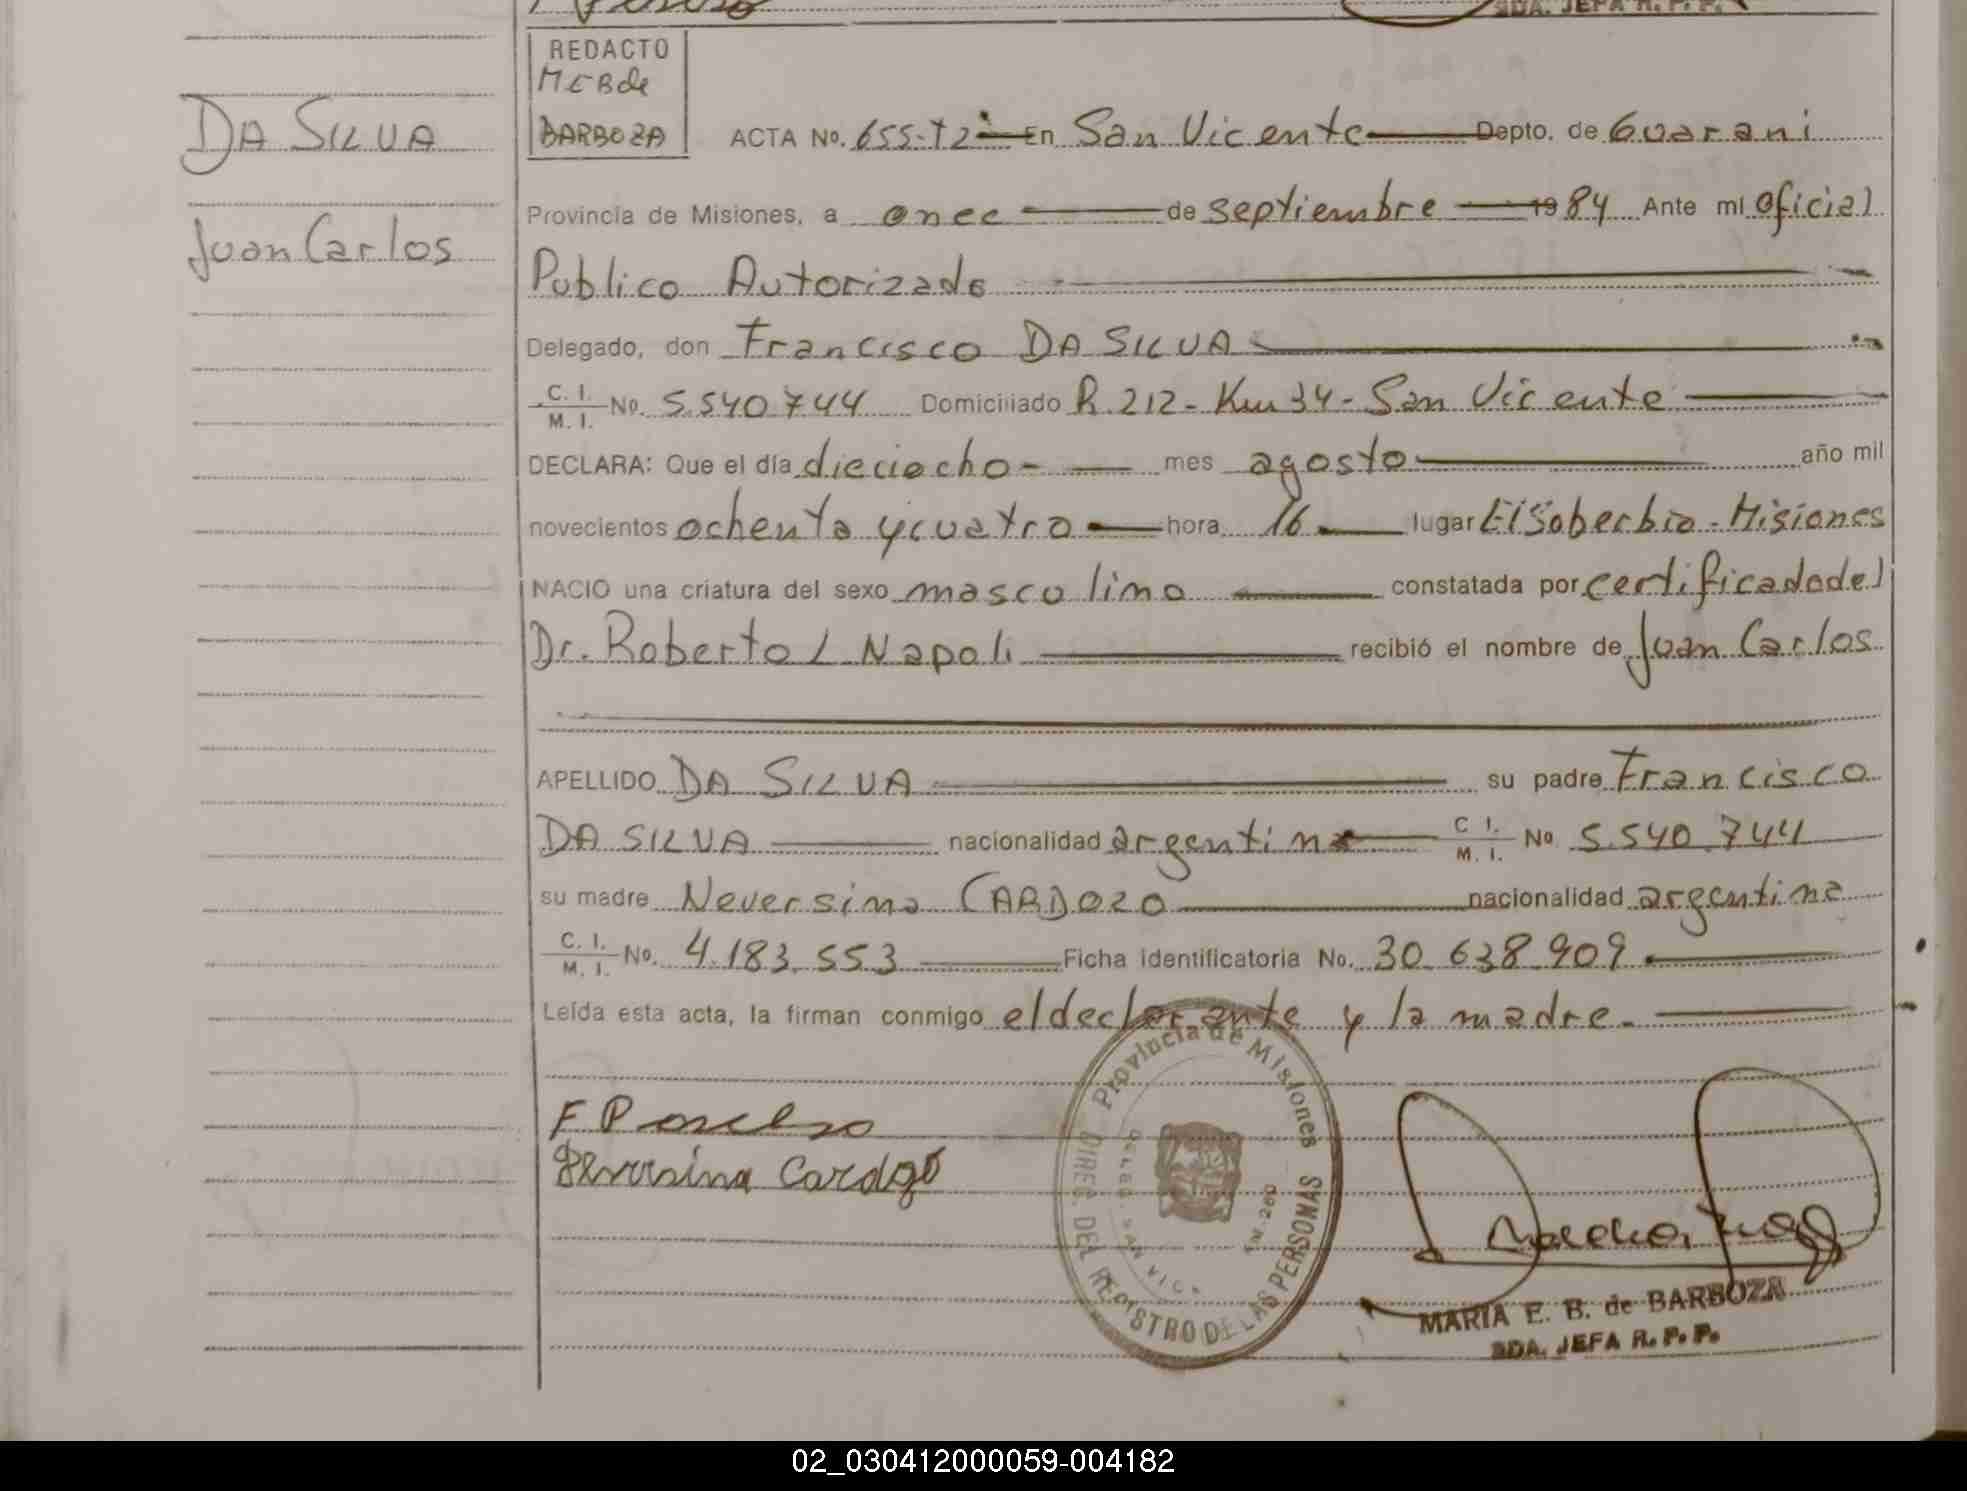 SDA. JEFA R. P. P.
REDACTO
MEBde
BARBOZA
DA SILVA
Juan Carlos
ACTA No. 655-T2- En San Vicente Depto. de Guarani
Provincia de Misiones, a once de septiembre 1984 Ante mi Oficial
Publico Autorizado
Delegado, don Francisco DA SILVA
C. I. / M. I. No. 5.540744 Domiciliado R. 212 - Km 34 - San Vicente
DECLARA: Que el día dieciocho - mes agosto año mil
novecientos ochenta y cuatro hora 16 lugar El Soberbio - Misiones
NACIO una criatura del sexo masculino constatada por certificado del
Dr. Roberto L Napoli recibió el nombre de Juan Carlos
APELLIDO DA SILVA su padre Francisco
DA SILVA nacionalidad argentina C I. / M. I. No. 5.540.744
su madre Neversina CARDOZO nacionalidad argentina
C. I. / M. I. No. 4.183.553 Ficha identificatoria No. 30.638.909
Leída esta acta, la firman conmigo el declarante y la madre.
Cardozo
Provincia de Misiones
DIREC. DEL REGISTRO DE LAS PERSONAS
DELEG. SAN VIC.
MARIA E. B. de BARBOZA
SDA. JEFA R. P. P.
02_030412000059-004182